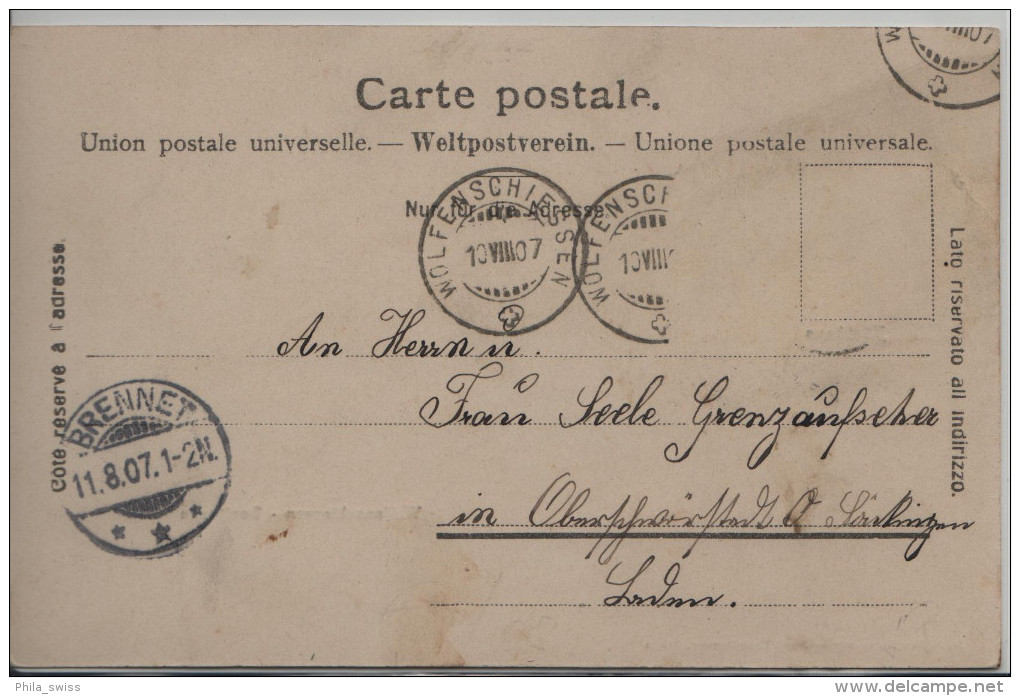 Carte postale.
Union postale universelle. — Weltpostverein. — Unione postale universale.
Nur für die Adresse
WOLFENSCHIESSEN
10 VIII 07
WOLFENSCH
10 VIII
VIII 07
Côté réservé à l'adresse.
Lato riservato all indirizzo.
BRENNET
11.8.07.1-2N.
An Herrn u.
Frau Seele Grenzaufseher
in Oberschwörstedt Säckingen
Baden.
Phila_swiss
delcampe.net